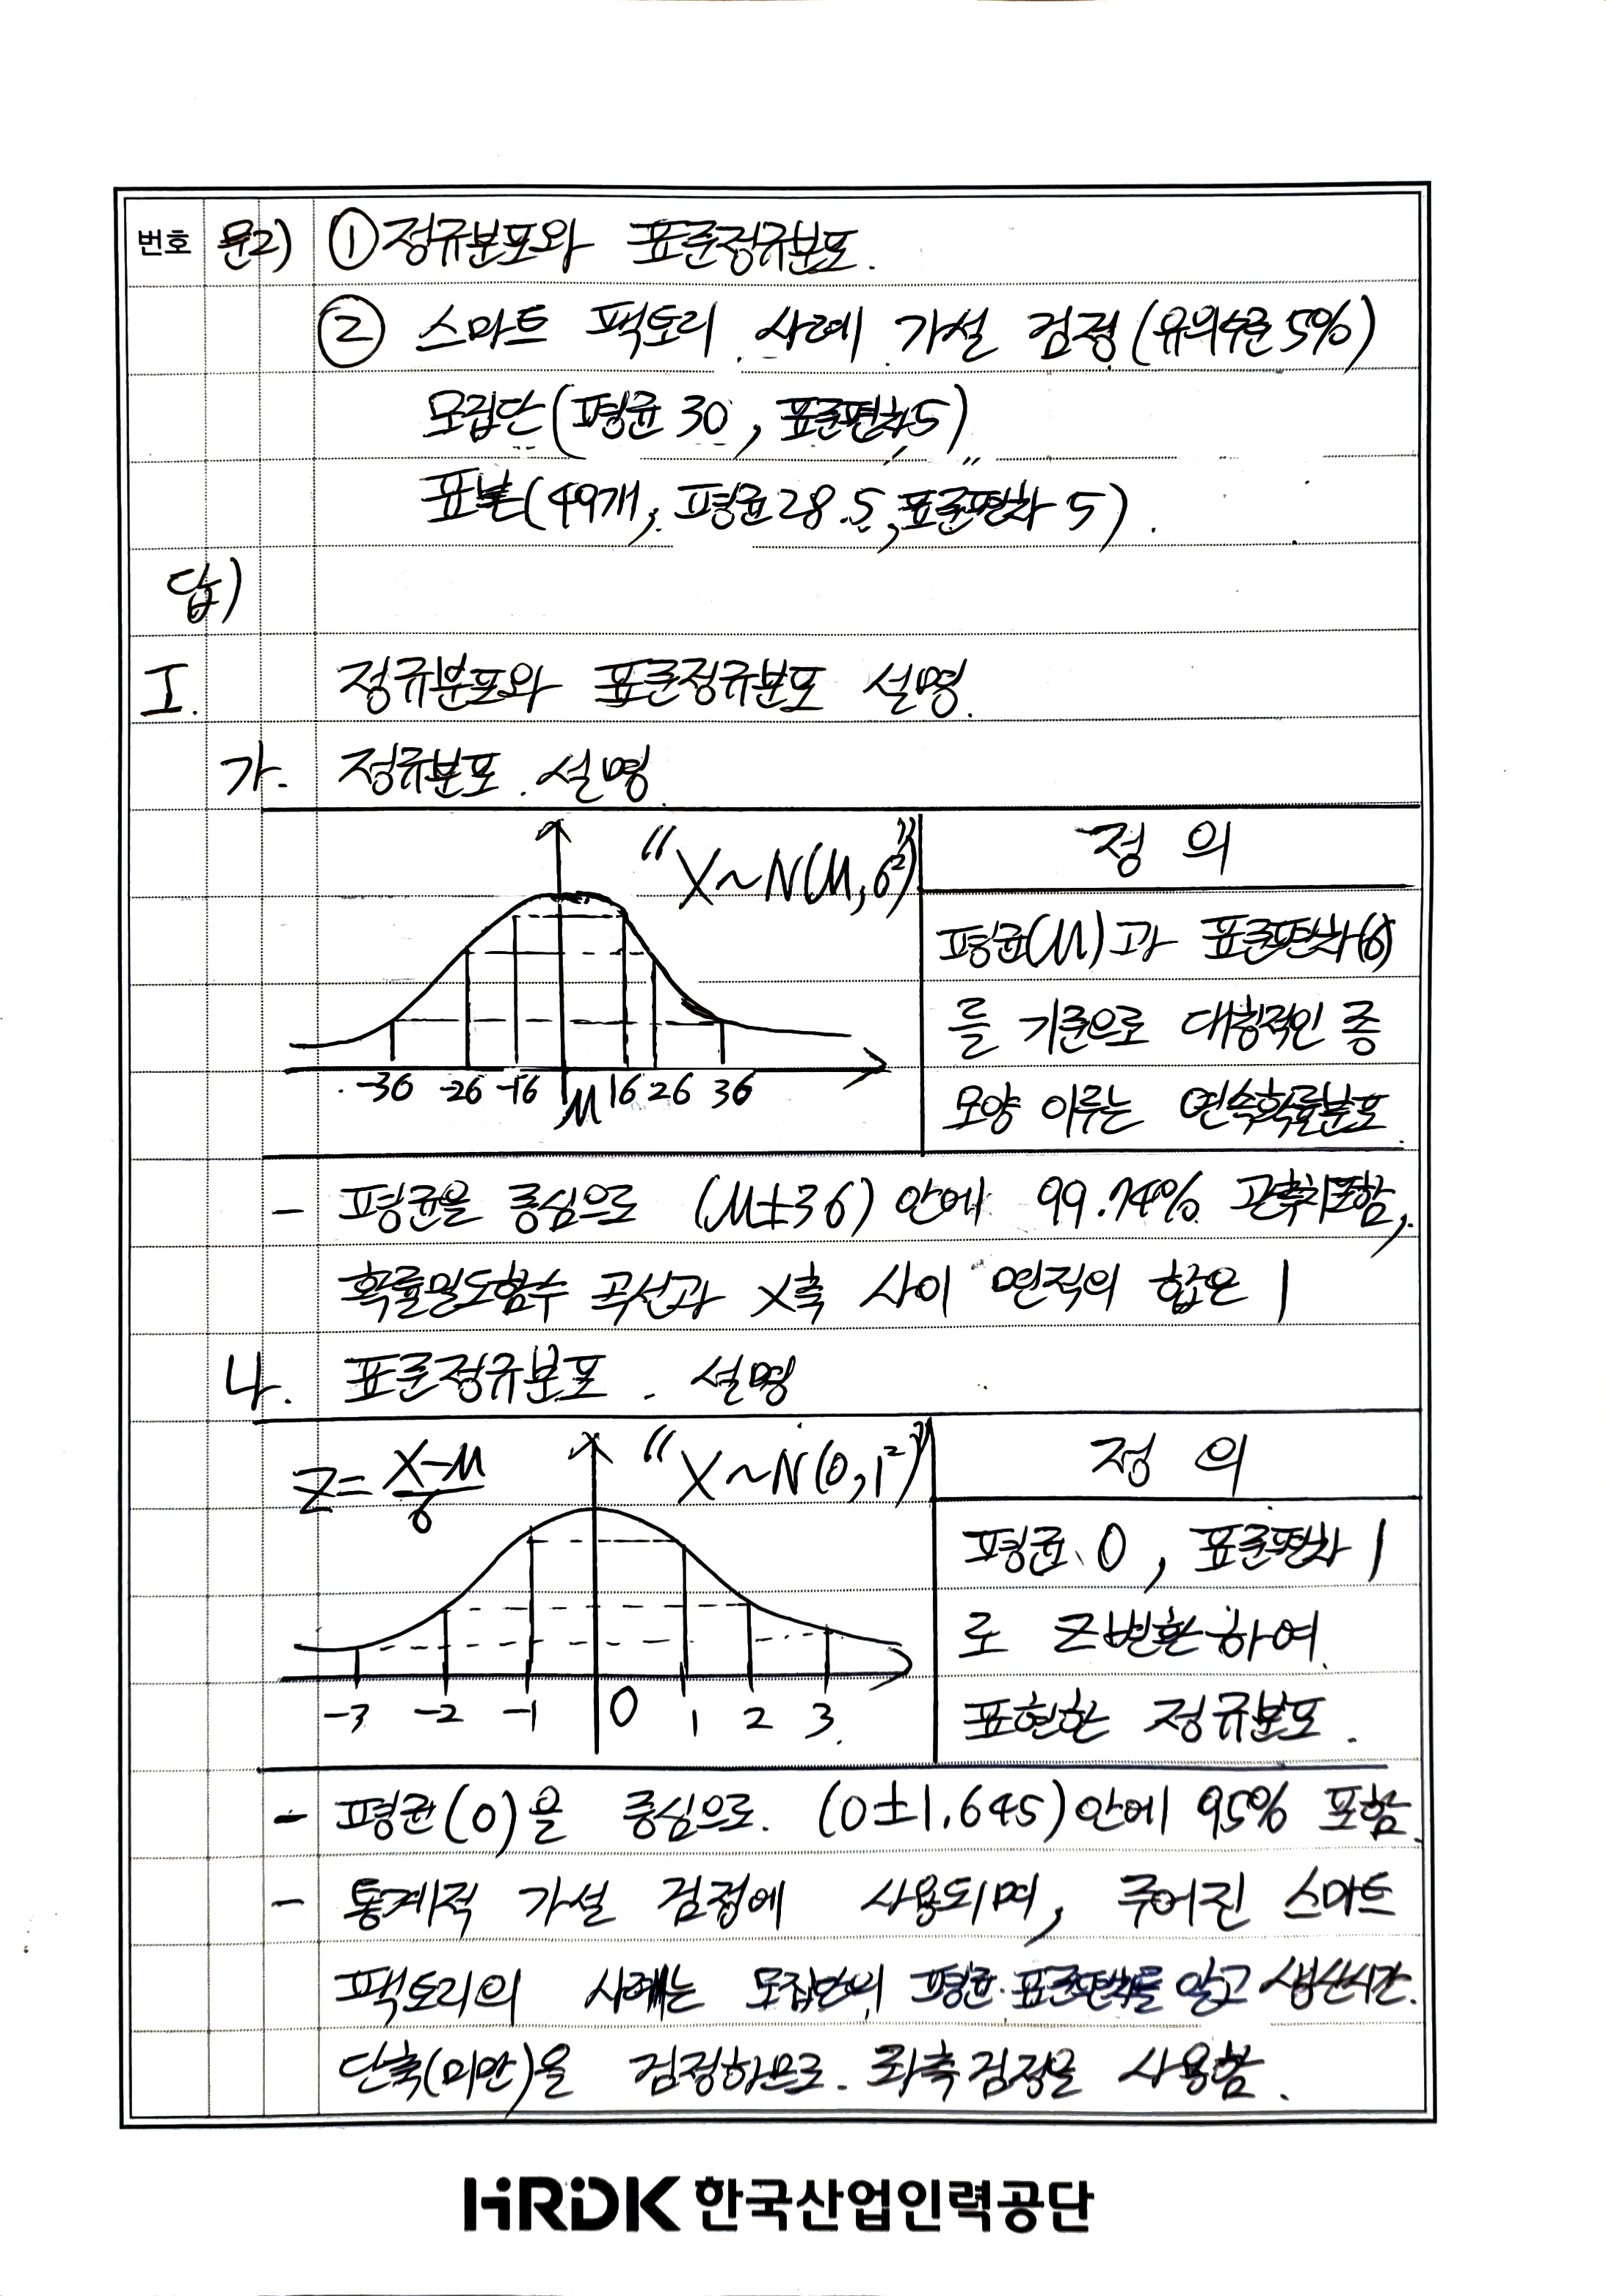 번호 문2) ① 정규분포와 표준정규분포.
② 스마트 팩토리 사례 가설 검정 (유의수준 5%)
모집단 (평균 30, 표준편차 5)
표본 (49개, 평균 28.5, 표준편차 5).
답)
I. 정규분포와 표준정규분포 설명.
가. 정규분포 설명
"X~N(μ, σ²)"
정 의
평균(μ)과 표준편차(σ)
를 기준으로 대칭적인 종
모양 이루는 연속확률분포.
-3σ -2σ -1σ μ 1σ 2σ 3σ
- 평균을 중심으로 (μ±3σ) 안에 99.74% 관측치 포함,
확률밀도함수 곡선과 X축 사이 면적의 합은 1
나. 표준정규분포 설명
Z = (X-μ)/σ "X~N(0, 1²)"
정 의
평균 0, 표준편차 1
로 Z변환하여
표현한 정규분포.
-3 -2 -1 0 1 2 3
- 평균(0)을 중심으로 (0±1.645) 안에 95% 포함.
- 통계적 가설 검정에 사용되며, 주어진 스마트
팩토리의 사례는 모집단의 평균 표준편차를 알고 생산시간
단축(미만)을 검정하므로 좌측검정을 사용함.
HRDK 한국산업인력공단